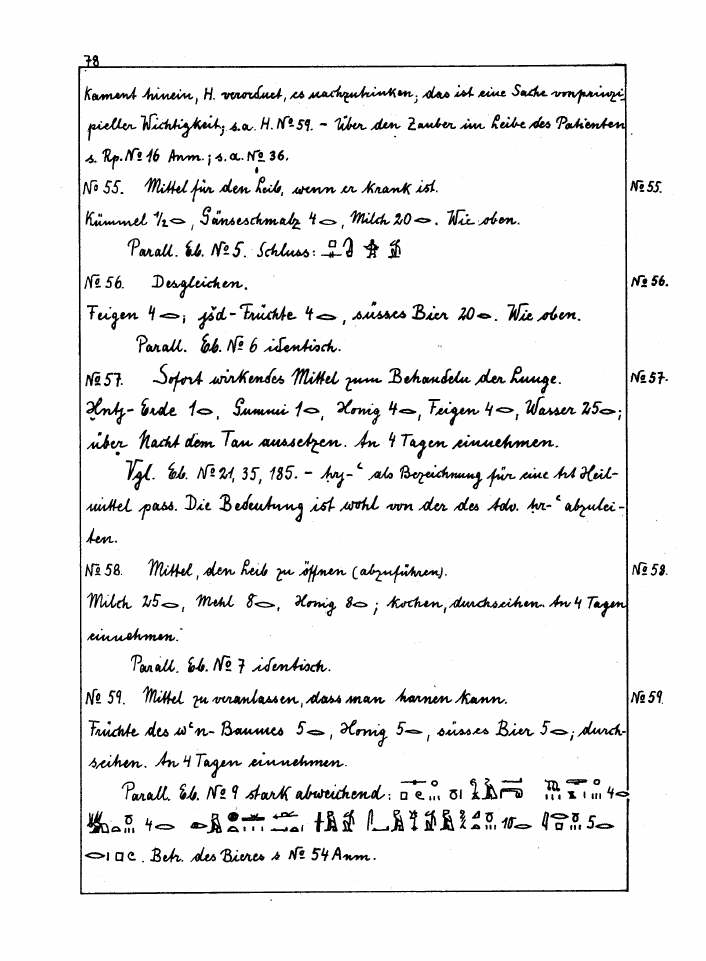 78
kament hinein, H. verordnet, es nachzutrinken; das ist eine Sache von prinzi-
pieller Wichtigkeit; s. a. H. № 59. – Über den Zauber im Leibe des Patienten
s. Rp. № 16 Anm.; s. a. № 36.
№ 55. Mittel für den Leib, wenn er krank ist. № 55.
Kümmel 1/2 𓂋, Gänseschmalz 4 𓂋, Milch 20 𓂋. Wie oben.
Parall. Eb. № 5. Schluss:
№ 56. Desgleichen. № 56.
Feigen 4 𓂋; jšd-Früchte 4 𓂋, süsses Bier 20 𓂋. Wie oben.
Parall. Eb. № 6 identisch.
№ 57. Sofort wirkendes Mittel zum Behandeln der Lunge. № 57.
Erde 1 𓂋, Gummi 1 𓂋, Honig 4 𓂋, Feigen 4 𓂋, Wasser 25 𓂋;
über Nacht dem Tau aussetzen. An 4 Tagen einnehmen.
Vgl. Eb. № 21, 35, 185. – ḥry-ʿ als Bezeichnung für eine Art Heil-
mittel pass. Die Bedeutung ist wohl von der des Adv. ḥr-ʿ abzulei-
ten.
№ 58. Mittel, den Leib zu öffnen (abzuführen). № 58.
Milch 25 𓂋, Mehl 8 𓂋, Honig 8 𓂋; kochen, durchseihen. An 4 Tagen
einnehmen.
Parall. Eb. № 7 identisch.
№ 59. Mittel zu veranlassen, dass man harnen kann. № 59.
Früchte des wʿn-Baumes 5 𓂋, Honig 5 𓂋, süsses Bier 5 𓂋; durch-
seihen. An 4 Tagen einnehmen.
Parall. Eb. № 9 stark abweichend: 4 𓂋
4 𓂋 10 𓂋 5 𓂋
Betr. des Bieres s № 54 Anm.